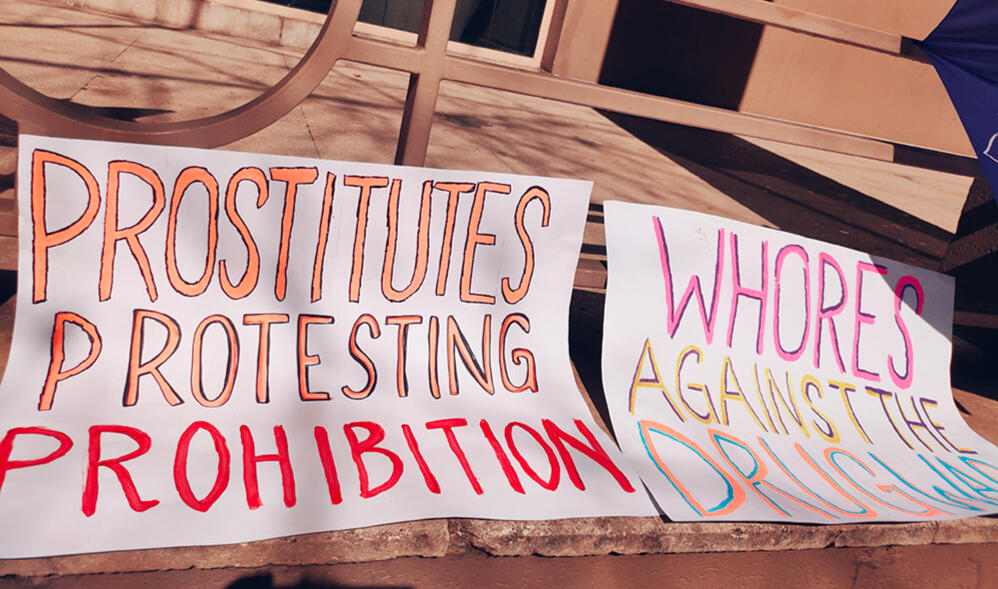 PROSTITUTES
PROTESTING
PROHIBITION
WHORES
AGAINST THE
DRUG WAR